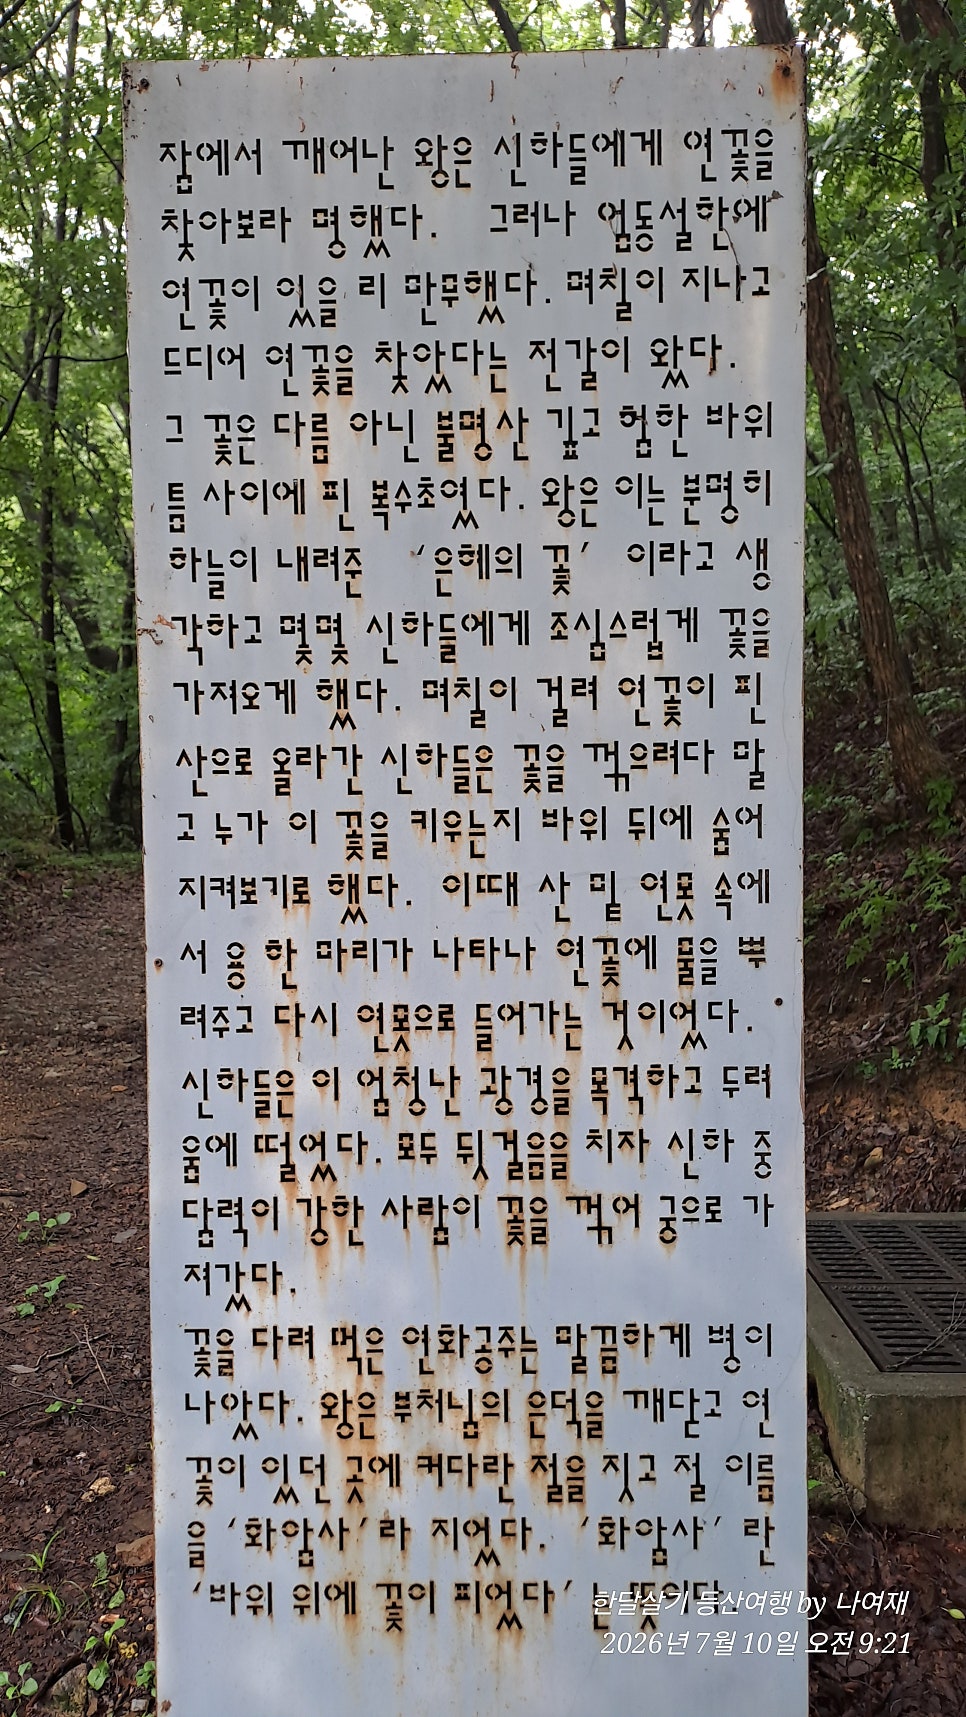 잠에서 깨어난 왕은 신하들에게 연꽃을
찾아보라 명했다. 그러나 엄동설한에
연꽃이 있을 리 만무했다. 며칠이 지나고
드디어 연꽃을 찾았다는 전갈이 왔다.
그 꽃은 다름 아닌 불명산 깊고 험한 바위
틈 사이에 핀 복수초였다. 왕은 이는 분명히
하늘이 내려준 ‘은혜의 꽃’ 이라고 생
각하고 몇몇 신하들에게 조심스럽게 꽃을
가져오게 했다. 며칠이 걸려 연꽃이 핀
산으로 올라간 신하들은 꽃을 꺾으려다 말
고 누가 이 꽃을 키우는지 바위 뒤에 숨어
지켜보기로 했다. 이때 산 밑 연못 속에
서 용 한 마리가 나타나 연꽃에 물을 뿌
려주고 다시 연못으로 들어가는 것이었다.
신하들은 이 엄청난 광경을 목격하고 두려
움에 떨었다. 모두 뒷걸음을 치자 신하 중
담력이 강한 사람이 꽃을 꺾어 궁으로 가
져갔다.
꽃을 다려 먹은 연화공주는 말끔하게 병이
나았다. 왕은 부처님의 은덕을 깨닫고 연
꽃이 있던 곳에 커다란 절을 짓고 절 이름
을 ‘화암사’라 지었다. ‘화암사’ 란
‘바위 위에 꽃이 피었다’ 는 뜻이다.
한달살기 등산여행 by 나여재
2026년 7월 10일 오전 9:21